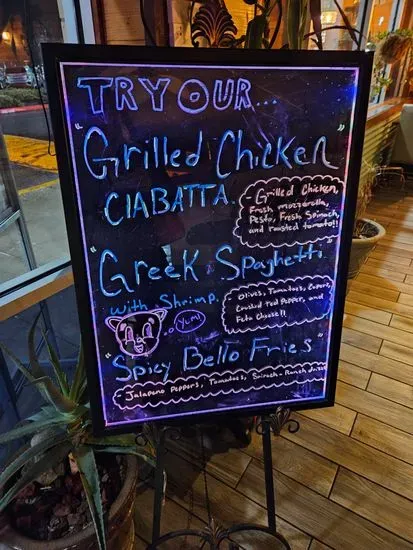 TRY OUR...
"Grilled Chicken
CIABATTA."
- Grilled Chicken,
Fresh mozzarella,
Pesto, Fresh Spinach,
and roasted tomato!!
"Greek Spaghetti"
with Shrimp.
Olives, Tomatoes, Capers,
Crushed red Pepper, and
Feta Cheese!!
Yum!
"Spicy Bello Fries"
- Jalapeno Peppers, Tomatoes, Sriracha-Ranch